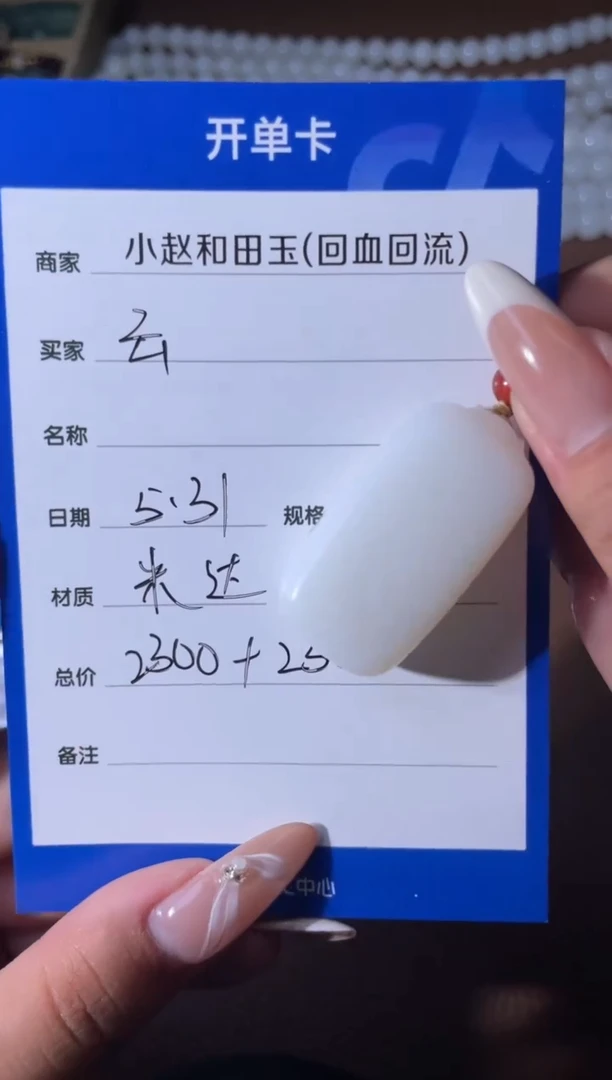 开单卡
商家 小赵和田玉(回血回流)
买家 云
名称
日期 5.31 规格
材质 米达
总价 2300+25
备注
中心